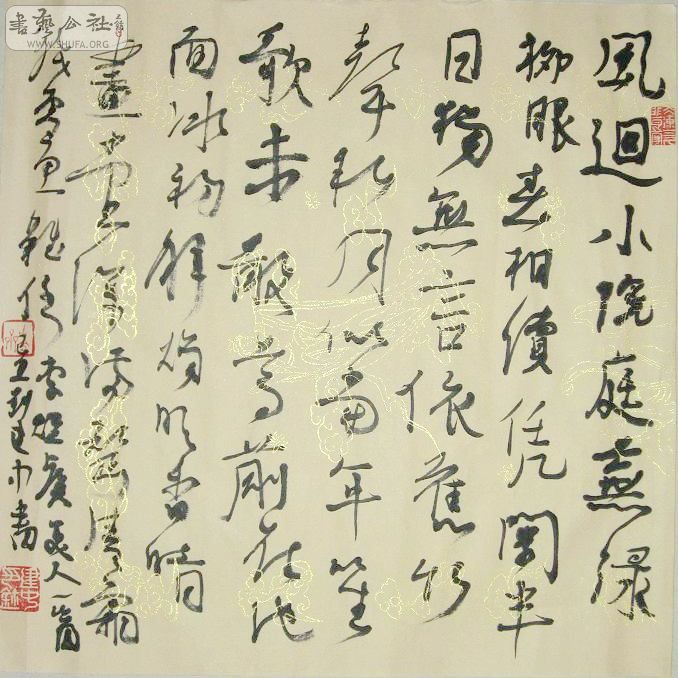 書藝公社
WWW.SHUFA.ORG
風迴小院庭蕪緑
柳眼春相續凭闌半
日獨無言依舊竹
聲新月似當年笙
歌未散尊前在池
面冰初解燭明香暗
畫堂深滿鬢清霜
殘雪思難任 李煜虞美人一首
己丑秋建中書